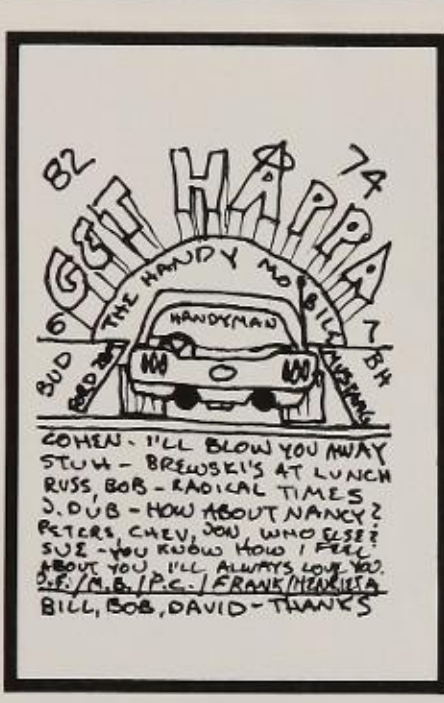 82
74
GET HAPPA
THE HANDY MO BILL
HANDYMAN
6
7
BUD
BH
FORD
MUSTANG
COHEN - I'LL BLOW YOU AWAY
STUH - BREWSKI'S AT LUNCH
RUSS, BOB - RADICAL TIMES
J. DUB - HOW ABOUT NANCY?
PETERS, CHEV, JON, WHO ELSE?
SUE - YOU KNOW HOW I FEEL
ABOUT YOU. I'LL ALWAYS LOVE YOU.
D.F. / M.B. / P.C. / FRANK/HENRIETA
BILL, BOB, DAVID - THANKS